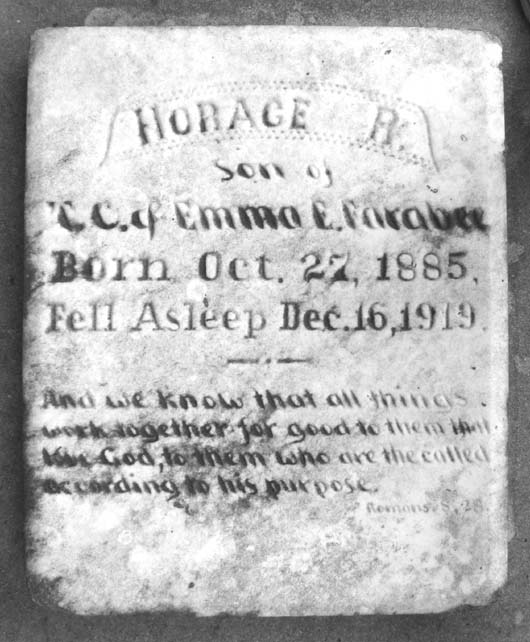 HORACE R.
Son of
T. C. & Emma E. Farabee
Born Oct. 27, 1885,
Fell Asleep Dec. 16, 1919.
And we know that all things
work together for good to them that
love God, to them who are the called
according to his purpose.
Romans 8, 28